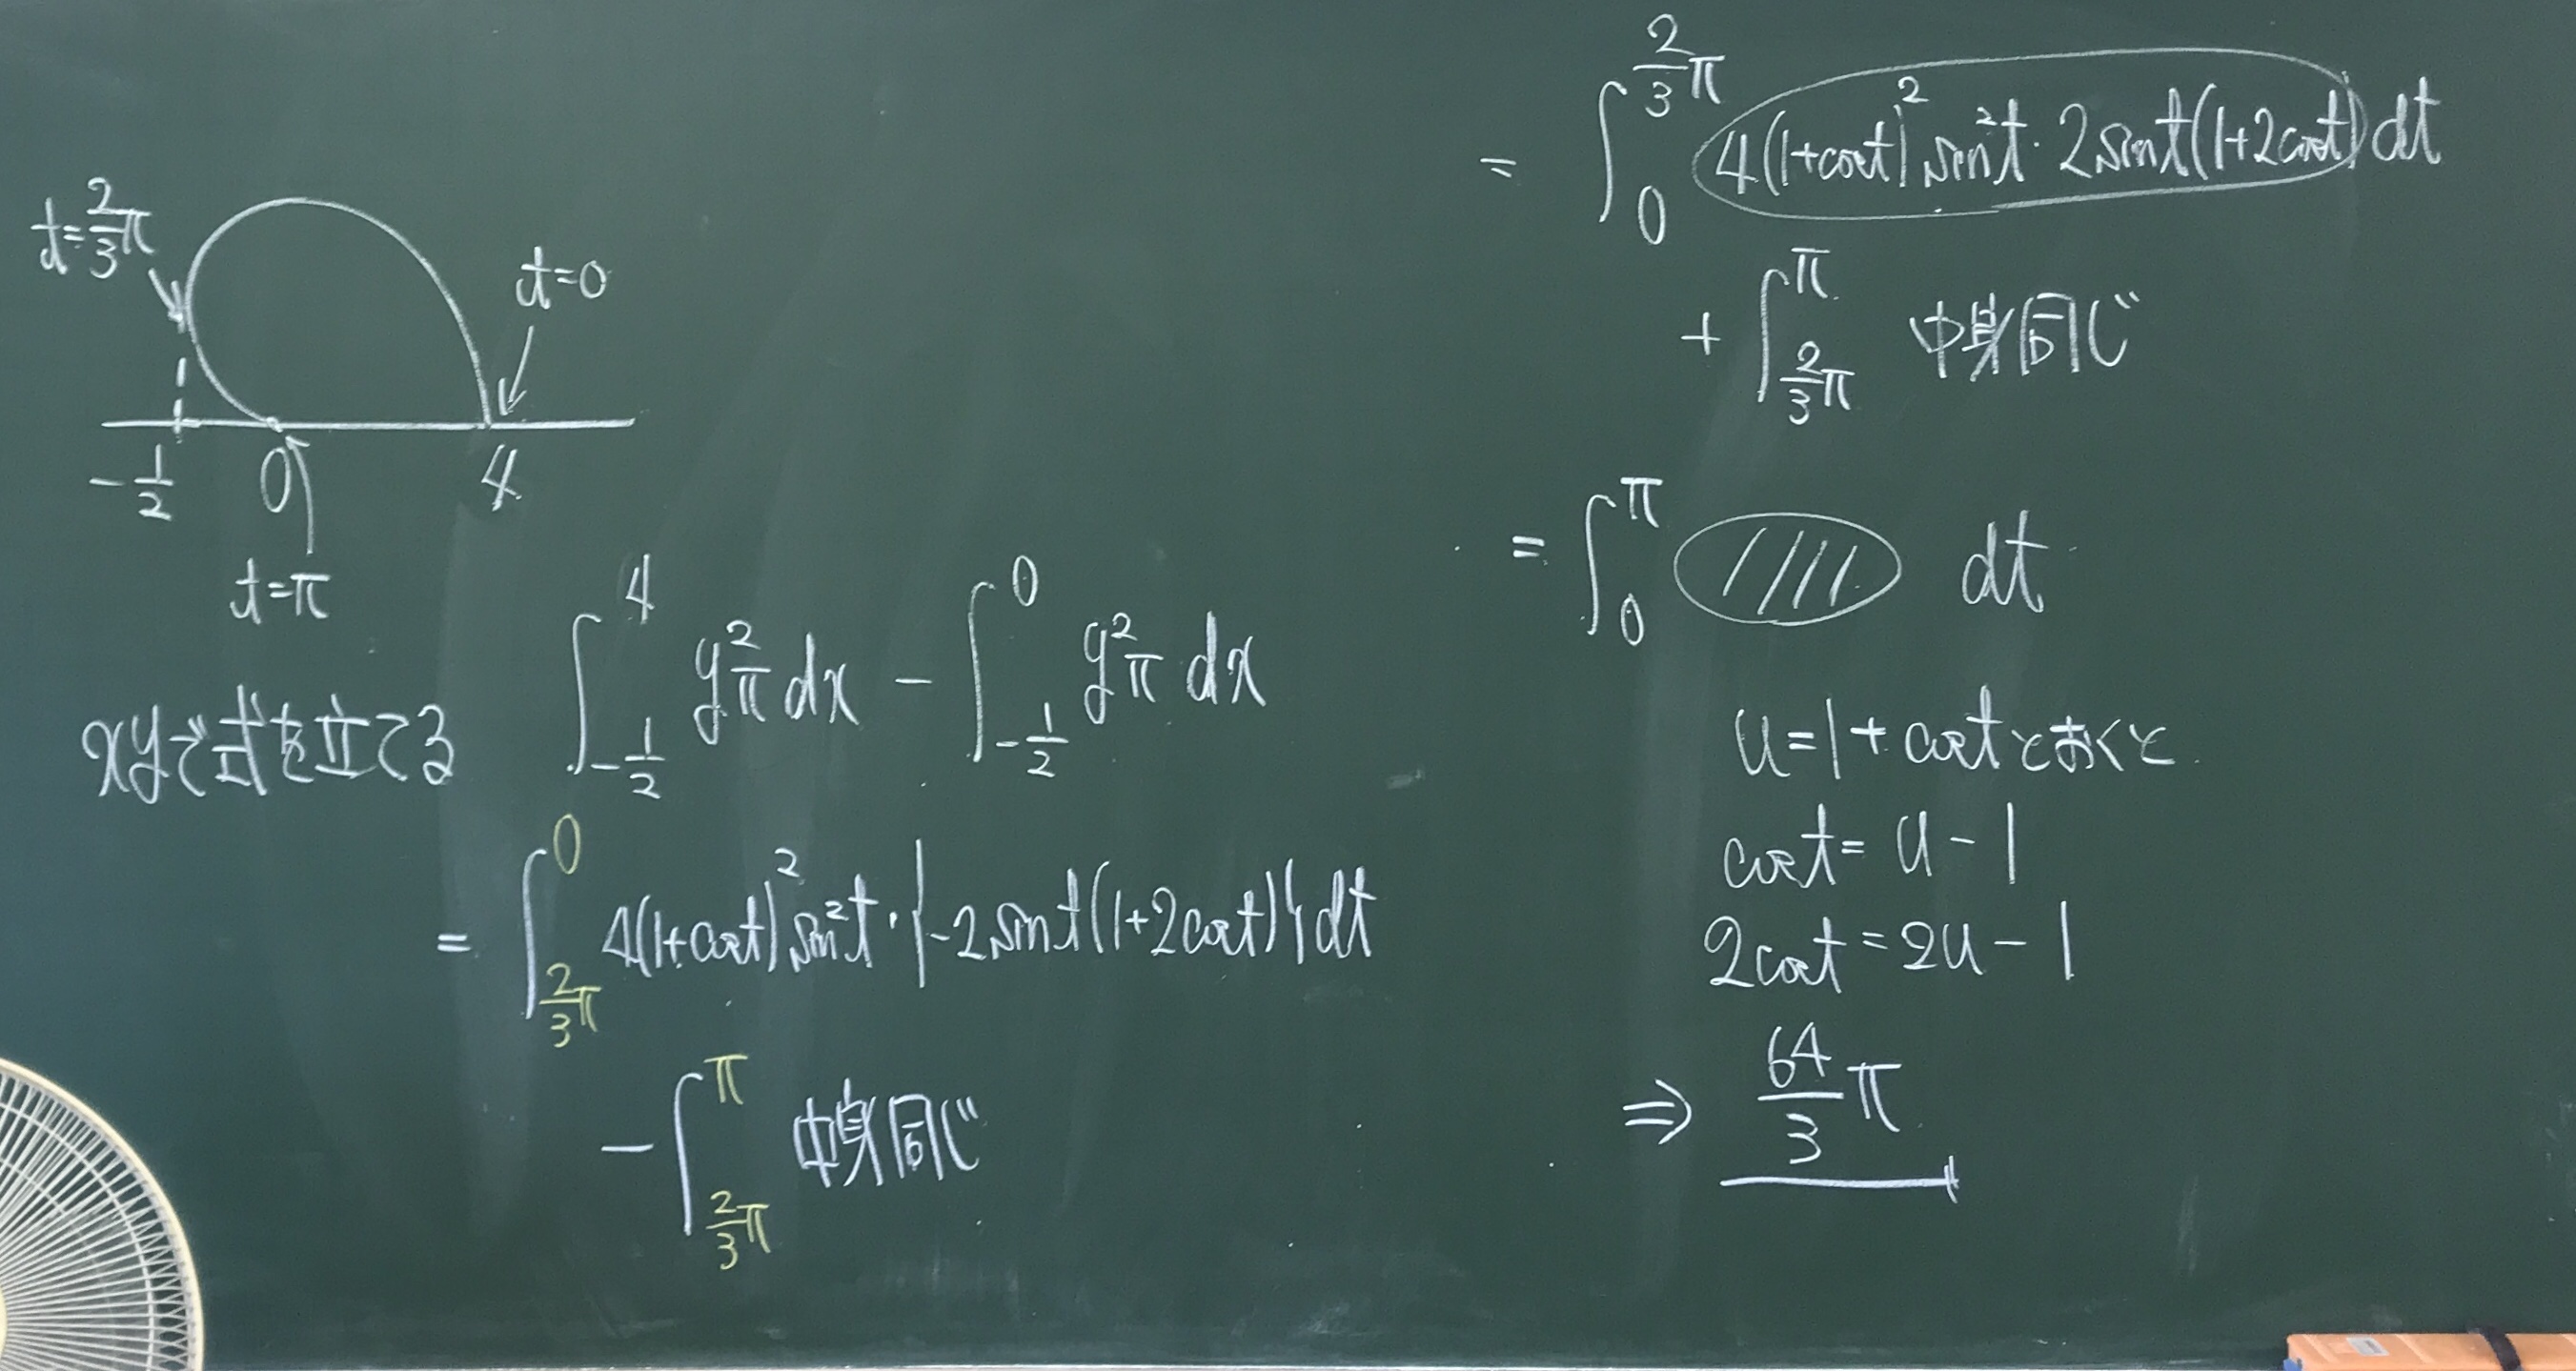 t=2/3π
t=0
-1/2 0 4
t=π
xyで式を立てる ∫_{-1/2}^{4} y²π dx - ∫_{-1/2}^{0} y²π dx
= ∫_{2/3π}^{0} 4(1+cost)² sin²t・{-2sint(1+2cost)}dt
- ∫_{2/3π}^{π} 中身同じ
= ∫_{0}^{2/3π} 4(1+cost)² sin²t・2sint(1+2cost)dt
+ ∫_{2/3π}^{π} 中身同じ
= ∫_{0}^{π} //// dt
u=1+costとおくと
cost=u-1
2cost=2u-1
⇒ 64/3π